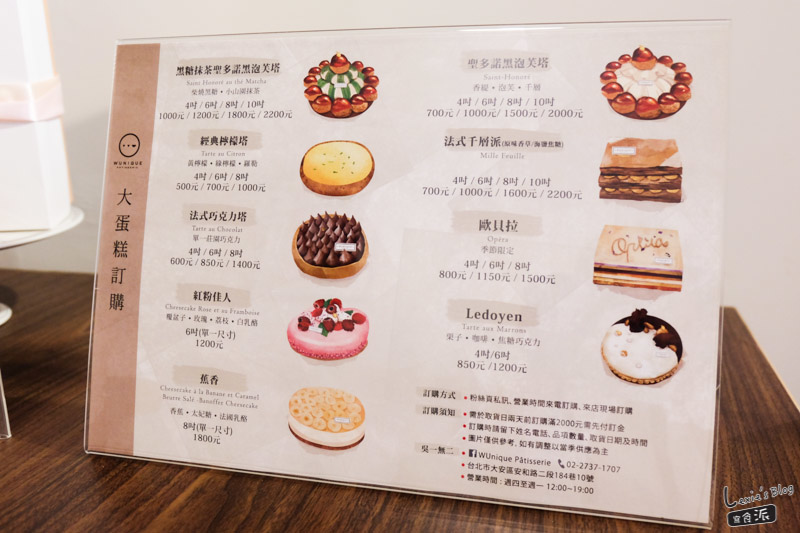 WUNIQUE
PATISSERIE
大蛋糕訂購
黑糖抹茶聖多諾黑泡芙塔
Saint-Honoré au thé Matcha
柴燒黑糖•小山園抹茶
4吋 / 6吋 / 8吋 / 10吋
1000元 / 1200元 / 1800元 / 2200元
經典檸檬塔
Tarte au Citron
黃檸檬•綠檸檬•羅勒
4吋 / 6吋 / 8吋
500元 / 700元 / 1000元
法式巧克力塔
Tarte au Chocolat
單一莊園巧克力
4吋 / 6吋 / 8吋
600元 / 850元 / 1400元
紅粉佳人
Cheesecake Rose et au Framboise
覆盆子•玫瑰•荔枝•白乳酪
6吋(單一尺寸)
1200元
蕉香
Cheesecake à la Banane et Caramel
Beurre Salé -Banoffee Cheesecake
香蕉•太妃糖•法國乳酪
8吋(單一尺寸)
1800元
聖多諾黑泡芙塔
Saint-Honoré
香緹•泡芙•千層
4吋 / 6吋 / 8吋 / 10吋
700元 / 1000元 / 1500元 / 2000元
法式千層派(原味香草/海鹽焦糖)
Mille Feuille
4吋 / 6吋 / 8吋 / 10吋
700元 / 1000元 / 1600元 / 2200元
歐貝拉
Opéra
季節限定
4吋 / 6吋 / 8吋
800元 / 1150元 / 1500元
Opéra
Ledoyen
Tarte aux Marrons
栗子•咖啡•焦糖巧克力
4吋/6吋
850元 /1200元
訂購方式 • 粉絲頁私訊、營業時間來電訂購、來店現場訂購
訂購須知 • 需於取貨日兩天前訂購滿2000元需先付訂金
• 訂購時請留下姓名電話、品項數量、取貨日期及時間
• 圖片僅供參考，如有調整以當季供應為主
吳一無二 • WUnique Pâtisserie 02-2737-1707
• 台北市大安區安和路二段184巷10號
• 營業時間 : 週四至週一 12:00~19:00
Lexie's Blog
寫食派